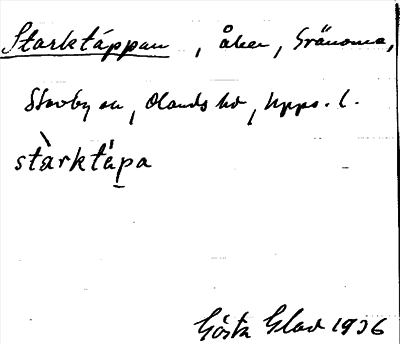 Starktäppan, åker, Gränome,
Stavby sn, Olands hd, Upps. l.
stàrktápa
Gösta Glad 1936